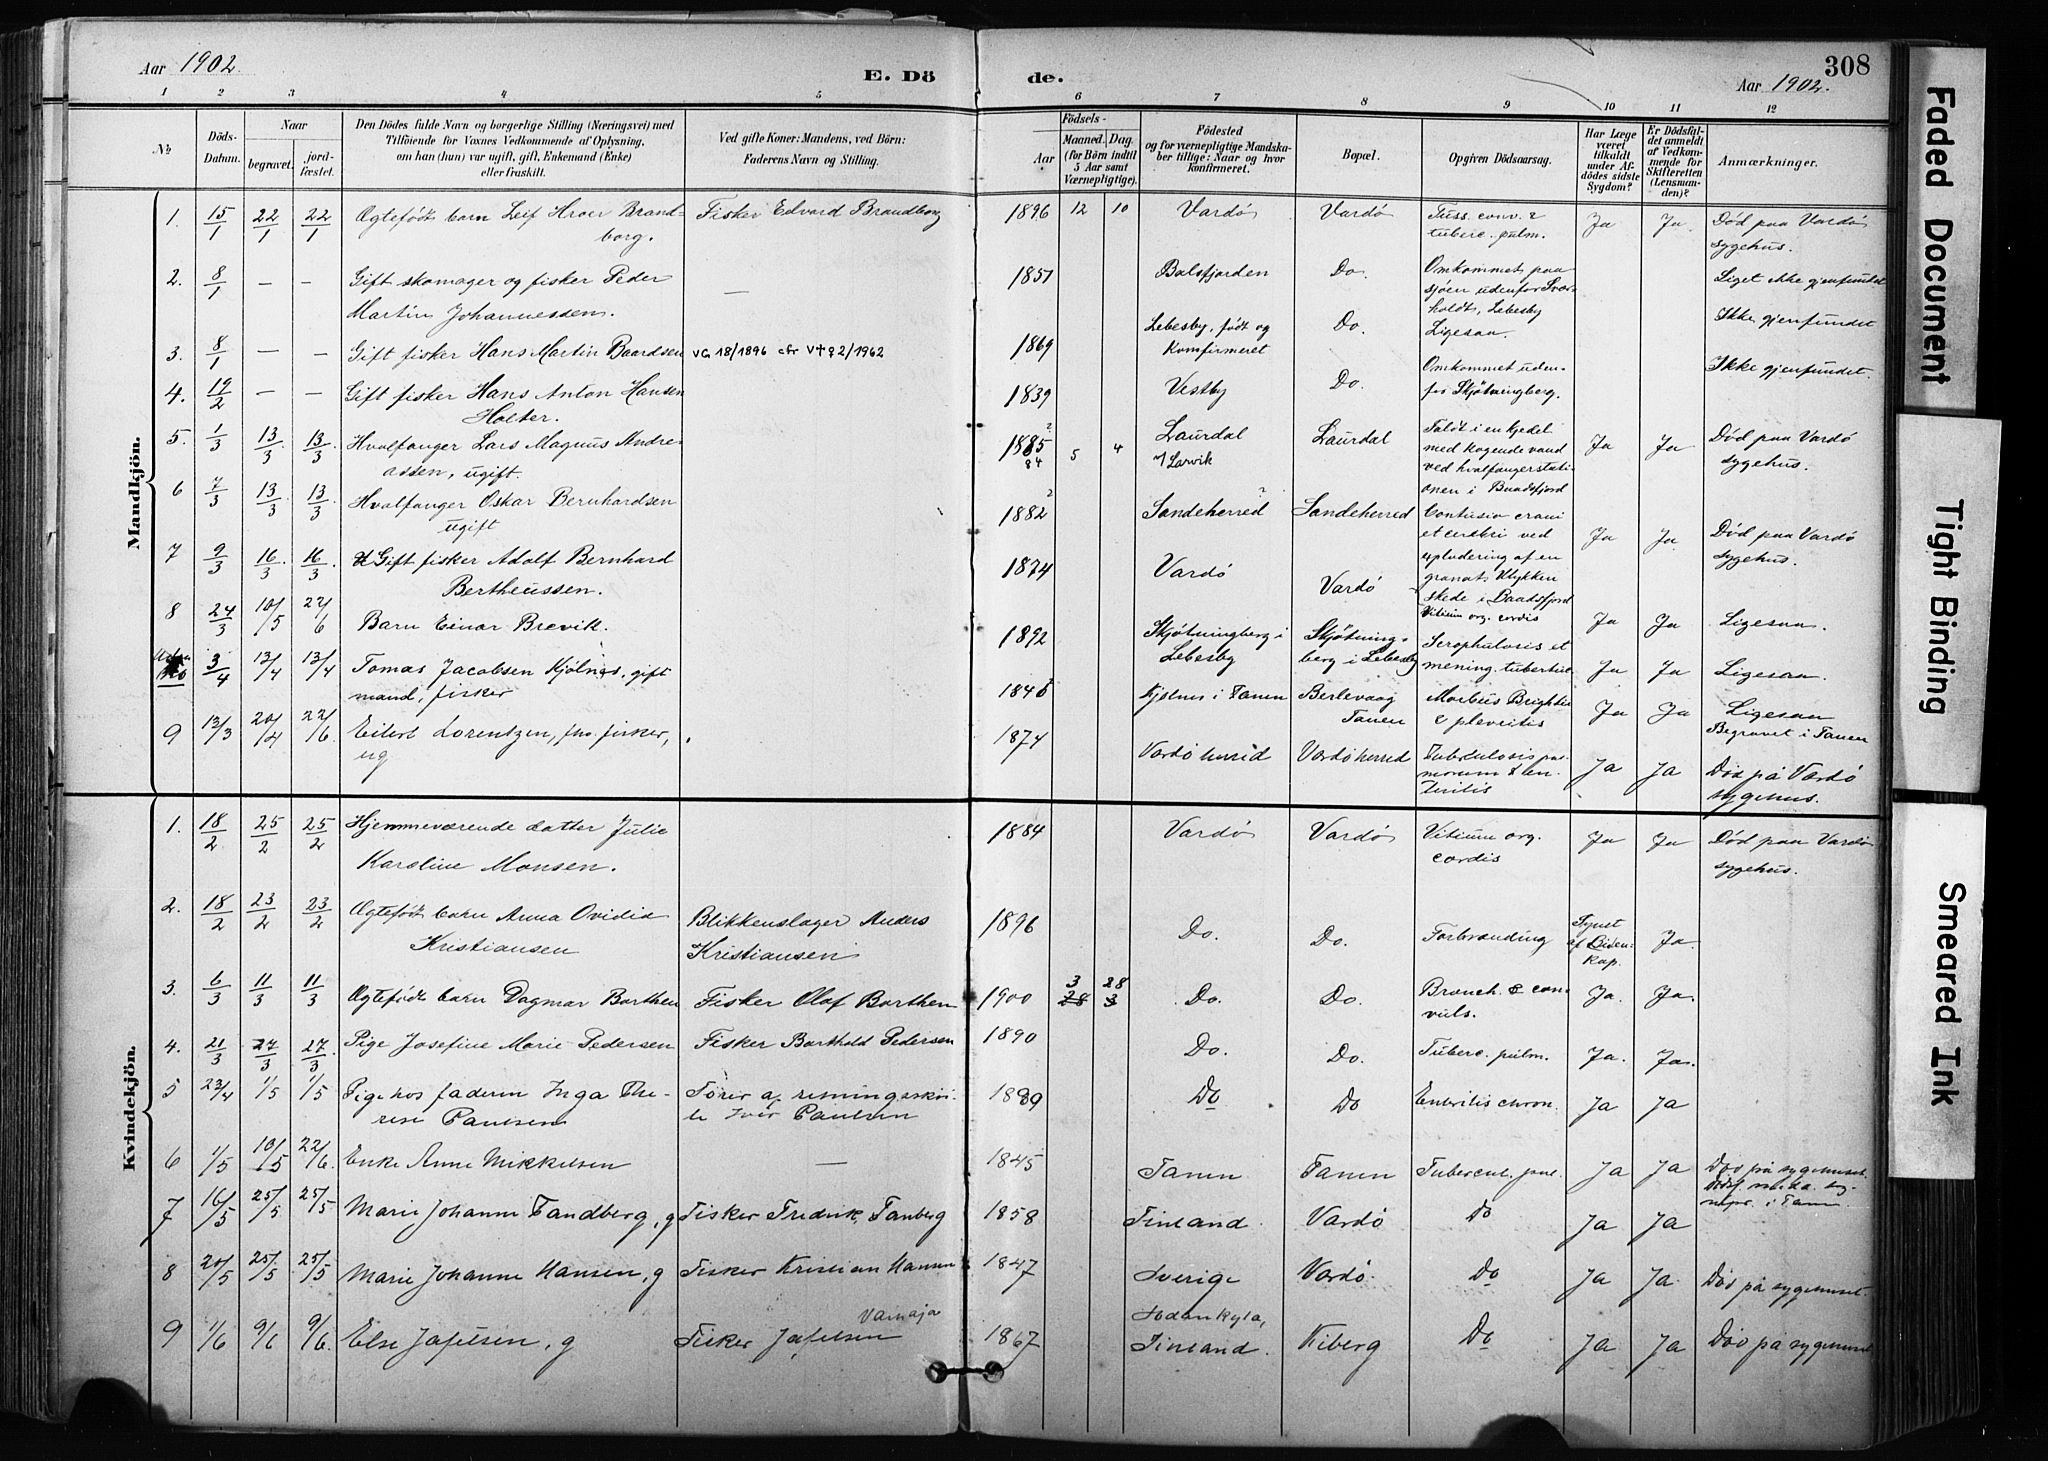 Aar 1902.
E. Dö
de.
Aar 1902.
308
1 2 3 4 5 6 7 8 9 10 11 12
№
Döds-Datum.
Naar
begravet.
jord-fæstet.
Den Dödes fulde Navn og borgerlige Stilling (Næringsvei) med
Tilföiende for Voxnes Vedkommende af Oplysning,
om han (hun) var ugift, gift, Enkemand (Enke)
eller fraskilt.
Ved gifte Koner: Mandens, ved Börn:
Faderens Navn og Stilling.
Födsels-
Aar
Maaned. Dag.
(for Börn indtil
5 Aar samt
Værnepligtige).
Födested
og for værnepligtige Mandska-
ber tillige: Naar og hvor
konfirmeret.
Bopæl.
Opgiven Dödsaarsag.
Har Læge
været
tilkaldt
under Af-
dödes sidste
Sygdom?
Er Dödsfal-
det anmeldt
af Vedkom-
mende for
Skifteretten
(Lensman-
den)?
Anmærkninger.
Mandkjön.
1. 15/1 22/1 22/1 Ægtefødt barn Leif Hroer Brand- Fisker Edvard Brandborg 1896 12 10 Vardø Vardø Tuss. conv. & Ja Ja. Død paa Vardø
borg. tuberc. pulm. sygehus.
2. 8/1 — — Gift skomager og fisker Peder — 1851 Balsfjorden Do. Omkommet paa Liget ikke gjenfundet
Martin Johannessen. sjøen udenfor Svær-
holdt, Lebesby
3. 8/1 — — Gift fisker Hans Martin Baardsen VG 18/1896 cfr V✝♀2/1962 1869 Lebesby, født og Do. Ligesaa. Ikke gjenfundet
Komfirmeret
4. 19/2 — — Gift fisker Hans Anton Hansen 1839 Vestby Do. Omkommet uden- Ikke gjenfundet.
Holter. for Skjøtningberg.
5. 1/3 13/3 13/3 Hvalfanger Lars Magnus Andre- 1885 ? 84 5 4 Laurdal Laurdal Faldt i en kjedel Ja Ja Død paa Vardø
assen, ugift. v/ Larvik med kogende vand sygehus.
ved hvalfangerstati-
onen i Baadsfjord
6 7/3 13/3 13/3 Hvalfanger Oskar Bernhardsen 1882 ? Sandeherred ? Sandeherred Contusio crani Ja Ja. Død paa Vardø
ugift et cerebri ved sygehus.
explodering af en
granat. Ulykken
skede i Baadsfjord
7 9/3 16/3 16/3 Gift fisker Adolf Bernhard 1874 Vardø Vardø Vitium org. cordis Ja Ja Ligesaa.
Bertheussen.
8 24/3 10/5 22/6 Barn Einar Brevik. 1892 Skjøtningberg i Skjøtning- Scrophulosis et Ja Ja Ligesaa.
Lebesby berg i Lebesby mening. tubercul.
Uden No 3/4 13/4 13/4 Tomas Jacobsen Kjølnes, gift 1846 Kjølnes i Tanen Berlevaag Morbus Brightii Ja Ja Ligesaa
mand, fisker Tanen & pleuritis Begravet i Tanen
9 13/3 20/4 22/6 Eilert Lorentzen, fhv fisker, 1874 Vardø herred Vardøherred Tuberculosis pul- Ja Ja Død på Vardø
ug monum & en- sygehus.
teritis
Kvindekjön.
1. 18/2 25/2 25/2 Hjemmeværende datter Julie 1884 Vardø Vardø Vitium org. Ja Ja Død paa Vardø
Karoline Monsen. cordis sygehus.
2. 18/2 23/2 23/2 Ægtefødt barn Anna Ovidia Blikkenslager Anders 1896 Do. Do. Forbrænding Synet Ja.
Kristiansen Kristiansen af Biden-
kap.
3. 6/3 11/3 11/3 Ægtefødt barn Dagmar Barthen Fisker Olaf Barthen 1900 3 28 28 3 Do. Do. Bronch. & con- Ja. Ja.
vuls.
4. 21/3 27/3 27/3 Pige Josefine Marie Pedersen Fisker Barthold Pedersen 1890 Do. Do. Tuberc. pulm. Ja. Ja.
5 23/4 1/5 1/5 Pige hos faderen Inga The- Fører af redningsskøi- 1889 Do Do Enteritis chron. Ja Ja
rese Paulsen te Iver Paulsen
6 1/5 10/5 22/6. Enke Anne Mikkelsen — 1845 Tanen Tanen Tubercul. pul. Ja Ja Død på sygehuset.
i Tanen
7 16/5 25/5 25/5 Marie Johanne Tandberg, g Fisker Fredrik Tanberg 1858 Finland. Vardø Do Ja Ja
8 20/5 25/5 25/5 Marie Johanne Hansen, g Fisker Kristian Hansen 1847 Sverige Vardø. Do Ja Ja. Død på sygehuset.
9 1/6 9/6 9/6. Else Jafetsen, g Fisker Jafetsen Vamaja 1867 Sodankyla, Kiberg Do Ja Ja Død på sygehuset
Finland.
Faded Document
Tight Binding
Smeared Ink